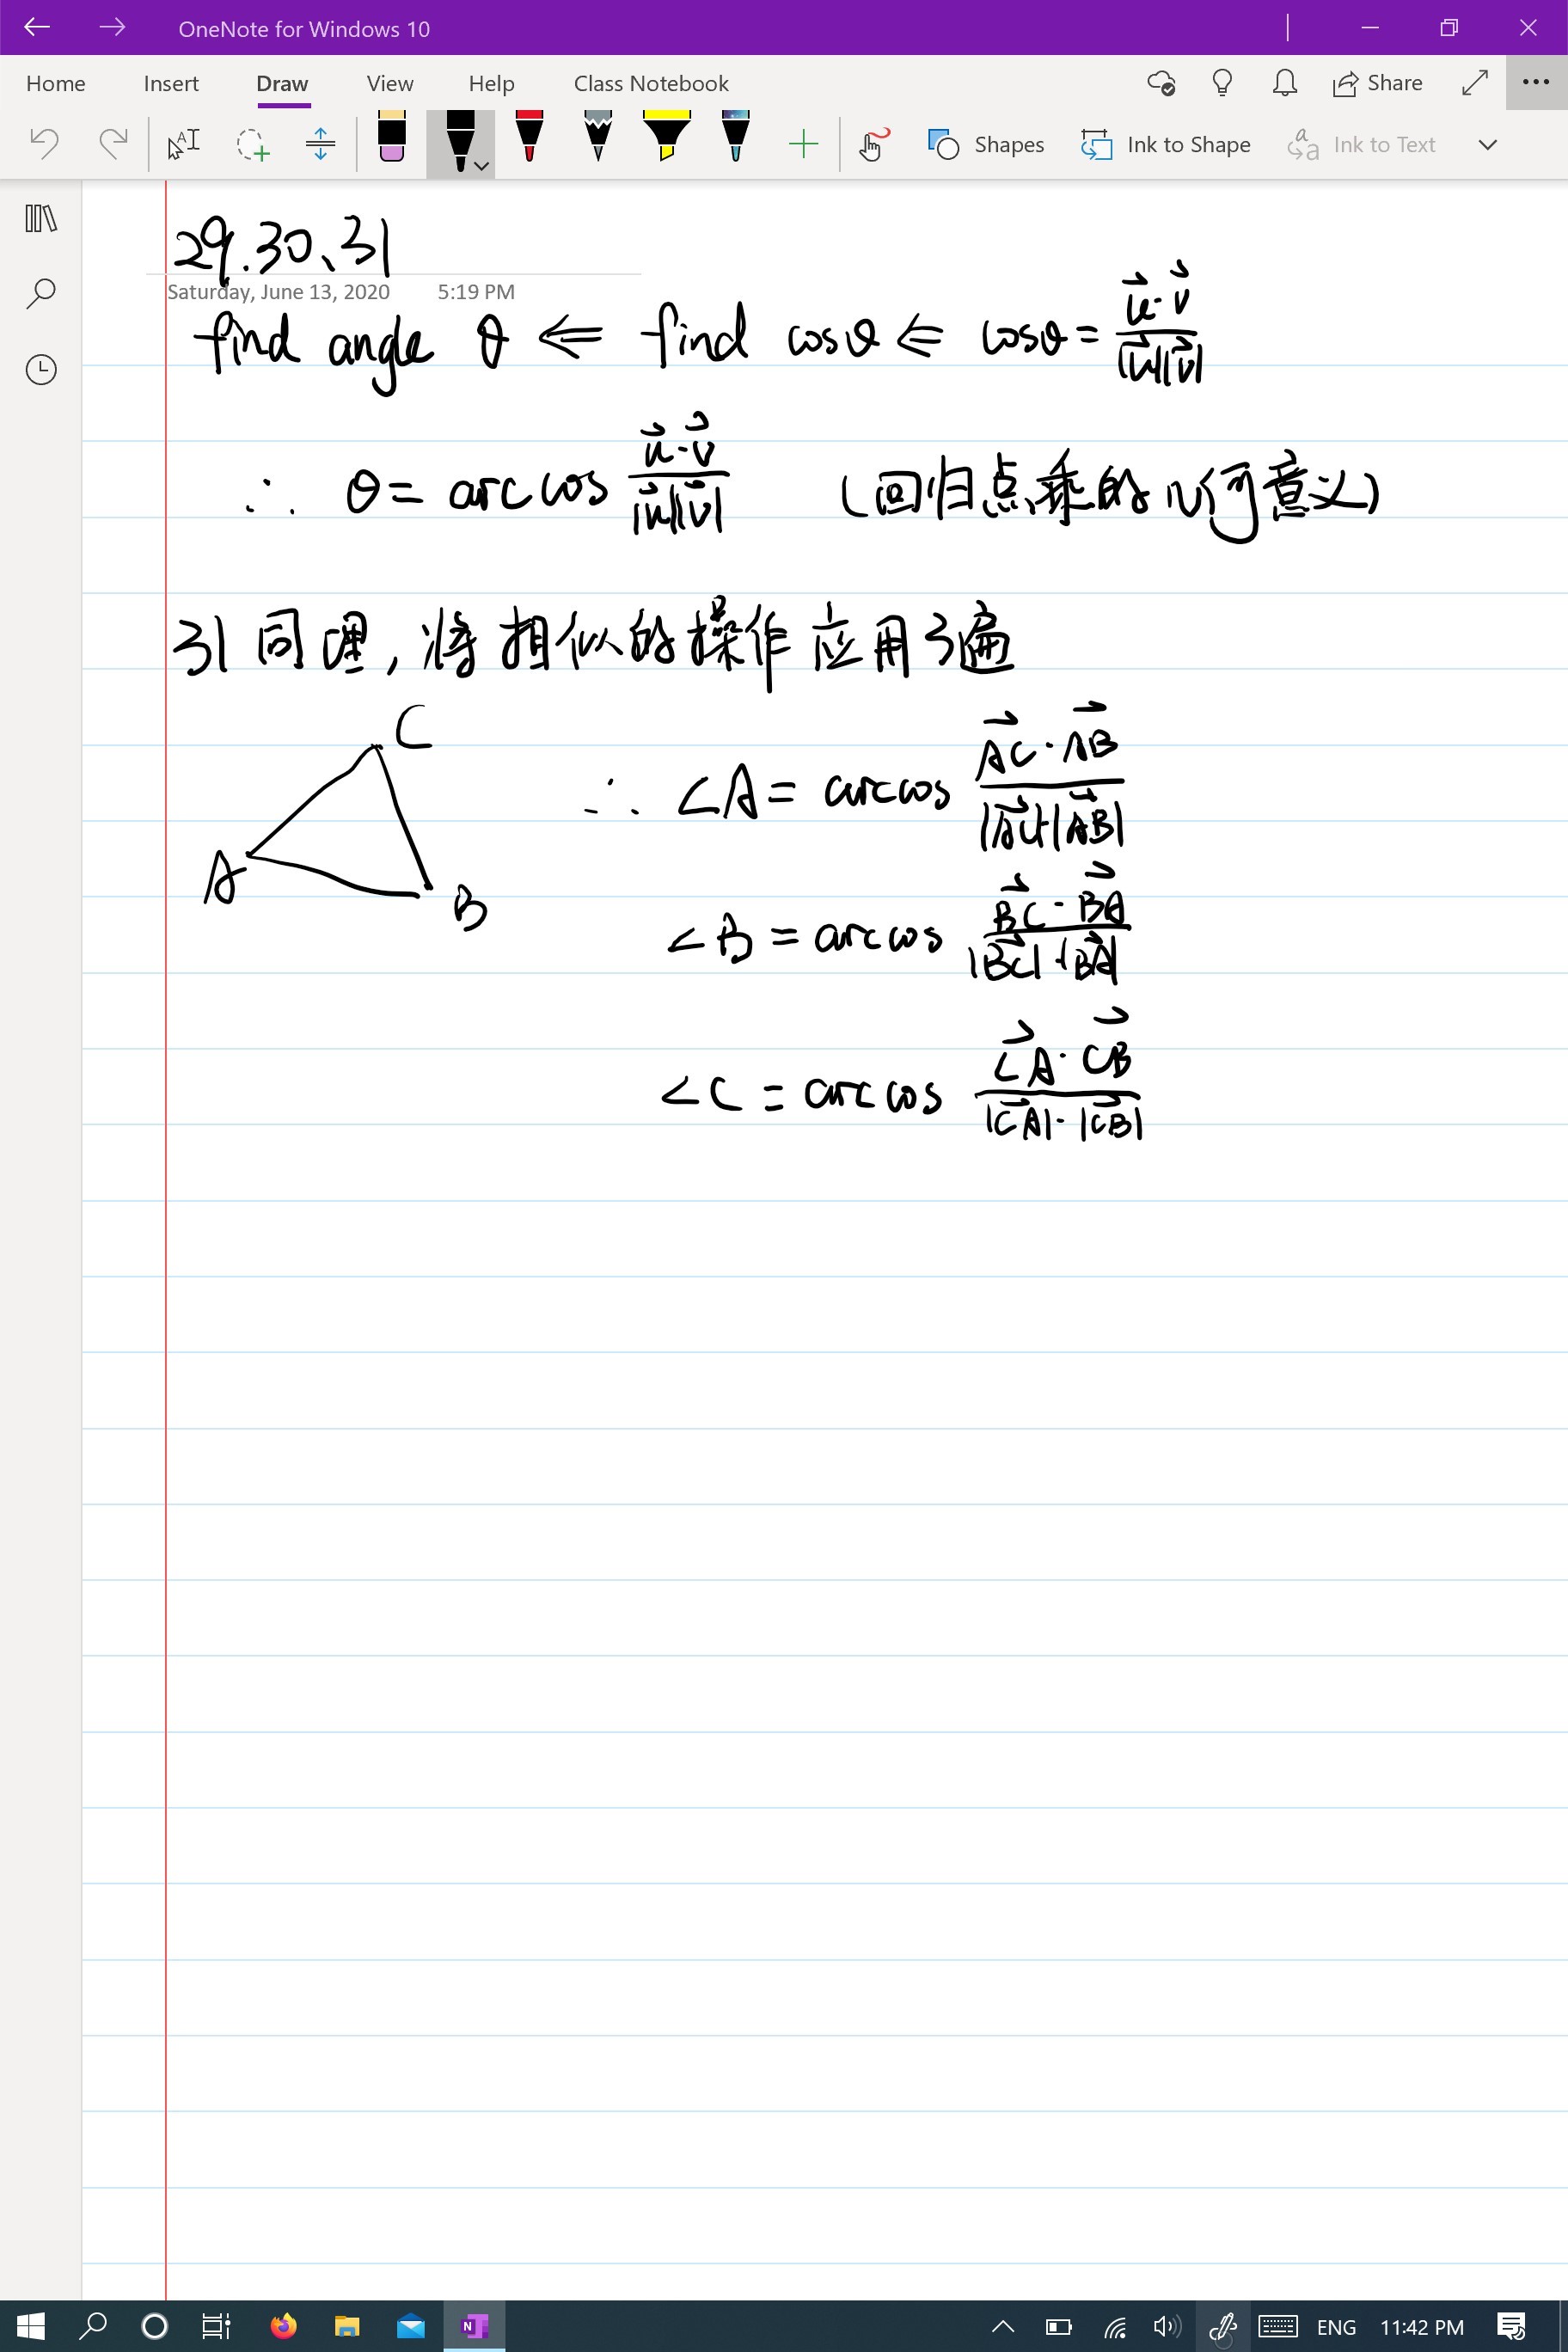 OneNote for Windows 10
Home Insert Draw View Help Class Notebook Share
Shapes Ink to Shape Ink to Text
29.30、31
Saturday, June 13, 2020 5:19 PM
find angle θ ⇐ find cosθ ⇐ cosθ = \frac{\vec{u}·\vec{v}}{|\vec{u}||\vec{v}|}
∴ θ = arccos \frac{\vec{u}·\vec{v}}{|\vec{u}||\vec{v}|} (回归点乘的几何意义)
31同理,将相似的操作应用3遍
C
A
B
∴ ∠A = arccos \frac{\vec{AC}·\vec{AB}}{|\vec{AC}|·|\vec{AB}|}
∠B = arccos \frac{\vec{BC}·\vec{BA}}{|\vec{BC}|·|\vec{BA}|}
∠C = arccos \frac{\vec{CA}·\vec{CB}}{|\vec{CA}|·|\vec{CB}|}
ENG 11:42 PM